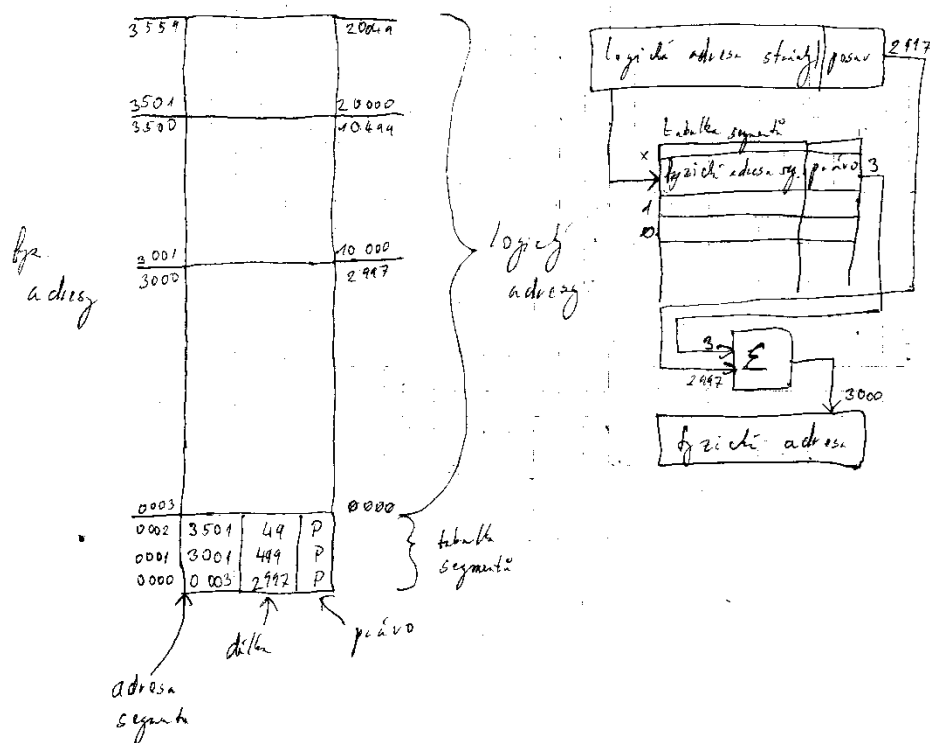 3559 20049
3501 20000
3500 10.499
3001 10 000
3000 2997
fyz. adresy
logický adresy
0003 0000
0002 3501 49 P
0001 3001 499 P
0000 0003 2997 P
tabulka segmentů
adresa segmentu
délka
právo
logická adresa posuv 2997
tabulka segmentů
x fyzická adresa seg. právo 3
1
0
3
2997
Σ
3000
fyzická adresa